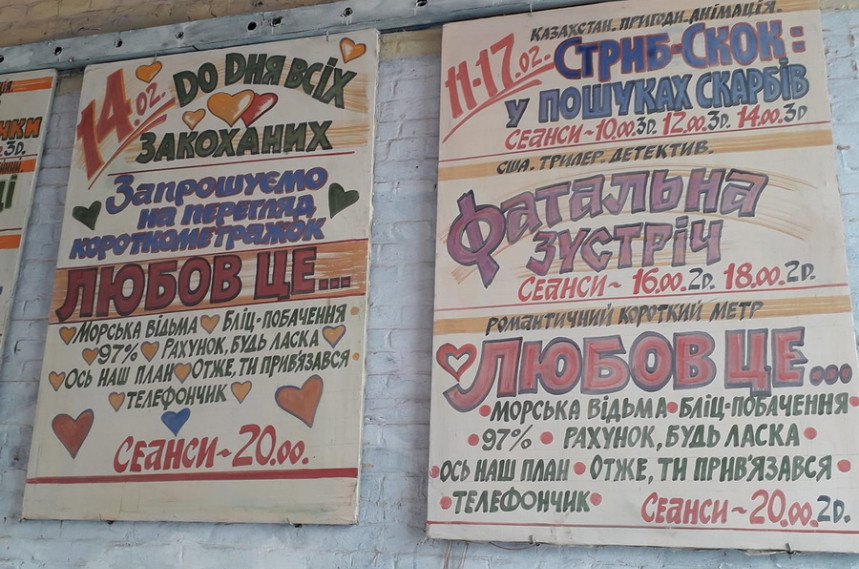 14.02.
ДО ДНЯ ВСІХ
ЗАКОХАНИХ
Запрошуємо
на перегляд
короткометражок
ЛЮБОВ ЦЕ...
МОРСЬКА ВІДЬМА БЛІЦ-ПОБАЧЕННЯ
97% РАХУНОК, БУДЬ ЛАСКА
ОСЬ НАШ ПЛАН ОТЖЕ, ТИ ПРИВ'ЯЗАВСЯ
ТЕЛЕФОНЧИК
СЕАНСИ~20.00.
КАЗАХСТАН. ПРИГОДИ. АНІМАЦІЯ.
11-17.02.
СТРИБ-СКОК:
У ПОШУКАХ СКАРБІВ
СЕАНСИ~10.00.3D. 12.00.3D. 14.00.3D
США. ТРИЛЕР. ДЕТЕКТИВ.
ФАТАЛЬНА
ЗУСТРІЧ
СЕАНСИ~16.00.2D. 18.00.2D.
РОМАНТИЧНИЙ КОРОТКИЙ МЕТР
ЛЮБОВ ЦЕ...
•МОРСЬКА ВІДЬМА•БЛІЦ-ПОБАЧЕННЯ•
•97%• РАХУНОК, БУДЬ ЛАСКА•
•ОСЬ НАШ ПЛАН•ОТЖЕ, ТИ ПРИВ'ЯЗАВСЯ•
•ТЕЛЕФОНЧИК• СЕАНСИ~20.00.2D.